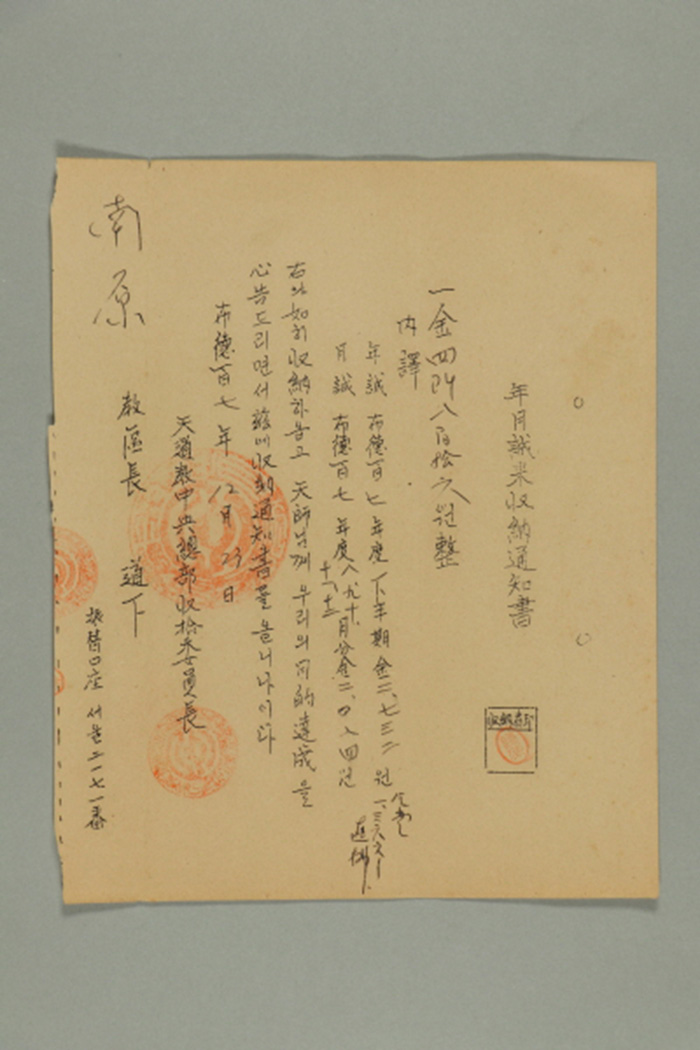 年月誠米收納通知書
一金四阡八百拾六원整
內譯
年誠 布德百七年度 下半期 金二、七三二원
月誠 布德百七年度 八、九、十、十一、十二月分金二、〇八四원
右와 如히 收納하옵고 天師님께 우리의 目的達成을
心告드리면서 玆에 收納通知書를 올니나이다
布德百七年 12月 23日
天道敎中央總部收拾委員長
南原
敎區長 道下
振替口座 서울 二一七一番